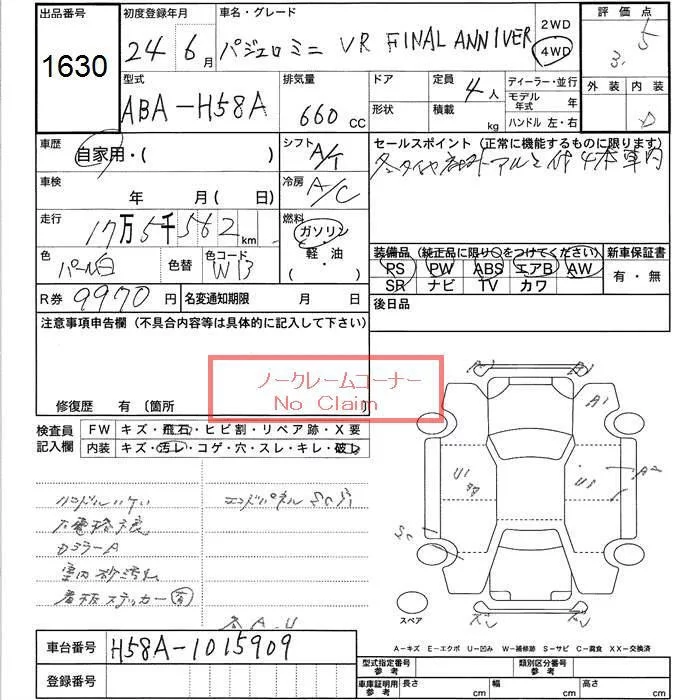 出品番号 初度登録年月 車名・グレード 2WD 評価点
1630 24年 6月 パジェロミニ VR FINAL ANNIVER 4WD 3.5
型式 排気量 ドア 定員 ディーラー・並行 外装 内装
ABA-H58A 660cc 4人 モデル年式 年 D
形状 積載 kg ハンドル 左・右
車歴 自家用・( ) シフト A/T セールスポイント (正常に機能するものに限ります)
車検 年 月 ( 日) 冷房 A/C
走行 17万5千562km 燃料 ガソリン・軽・油 ( )
装備品 (純正品に限り○をつけてください) 新車保証書
色 パール白 色替 色コード W13 PS PW ABS エアB AW 有・無
SR ナビ TV カワ
R券 9970円 名変通知期限 月 日 後日品
注意事項申告欄 (不具合内容等は具体的に記入して下さい)
ノークレームコーナー
No Claim
修復歴 有 〔箇所 〕
検査員記入欄 FW キズ・飛石・ヒビ割・リペア跡・X要
内装 キズ・汚レ・コゲ・穴・スレ・キレ・破レ
A1
U1
U1
ハンドルハゲ
エンドパネル
カラーA
室内
看板ステッカー 有
A.U
スペア
A-キズ E-エクボ U-凹み W-補修跡 S-サビ C-腐食 XX-交換済
車台番号 H58A-1015909
型式指定番号 参考 類別区分番号 参考
登録番号
車庫証明用 参考 長さ cm 幅 cm 高さ cm